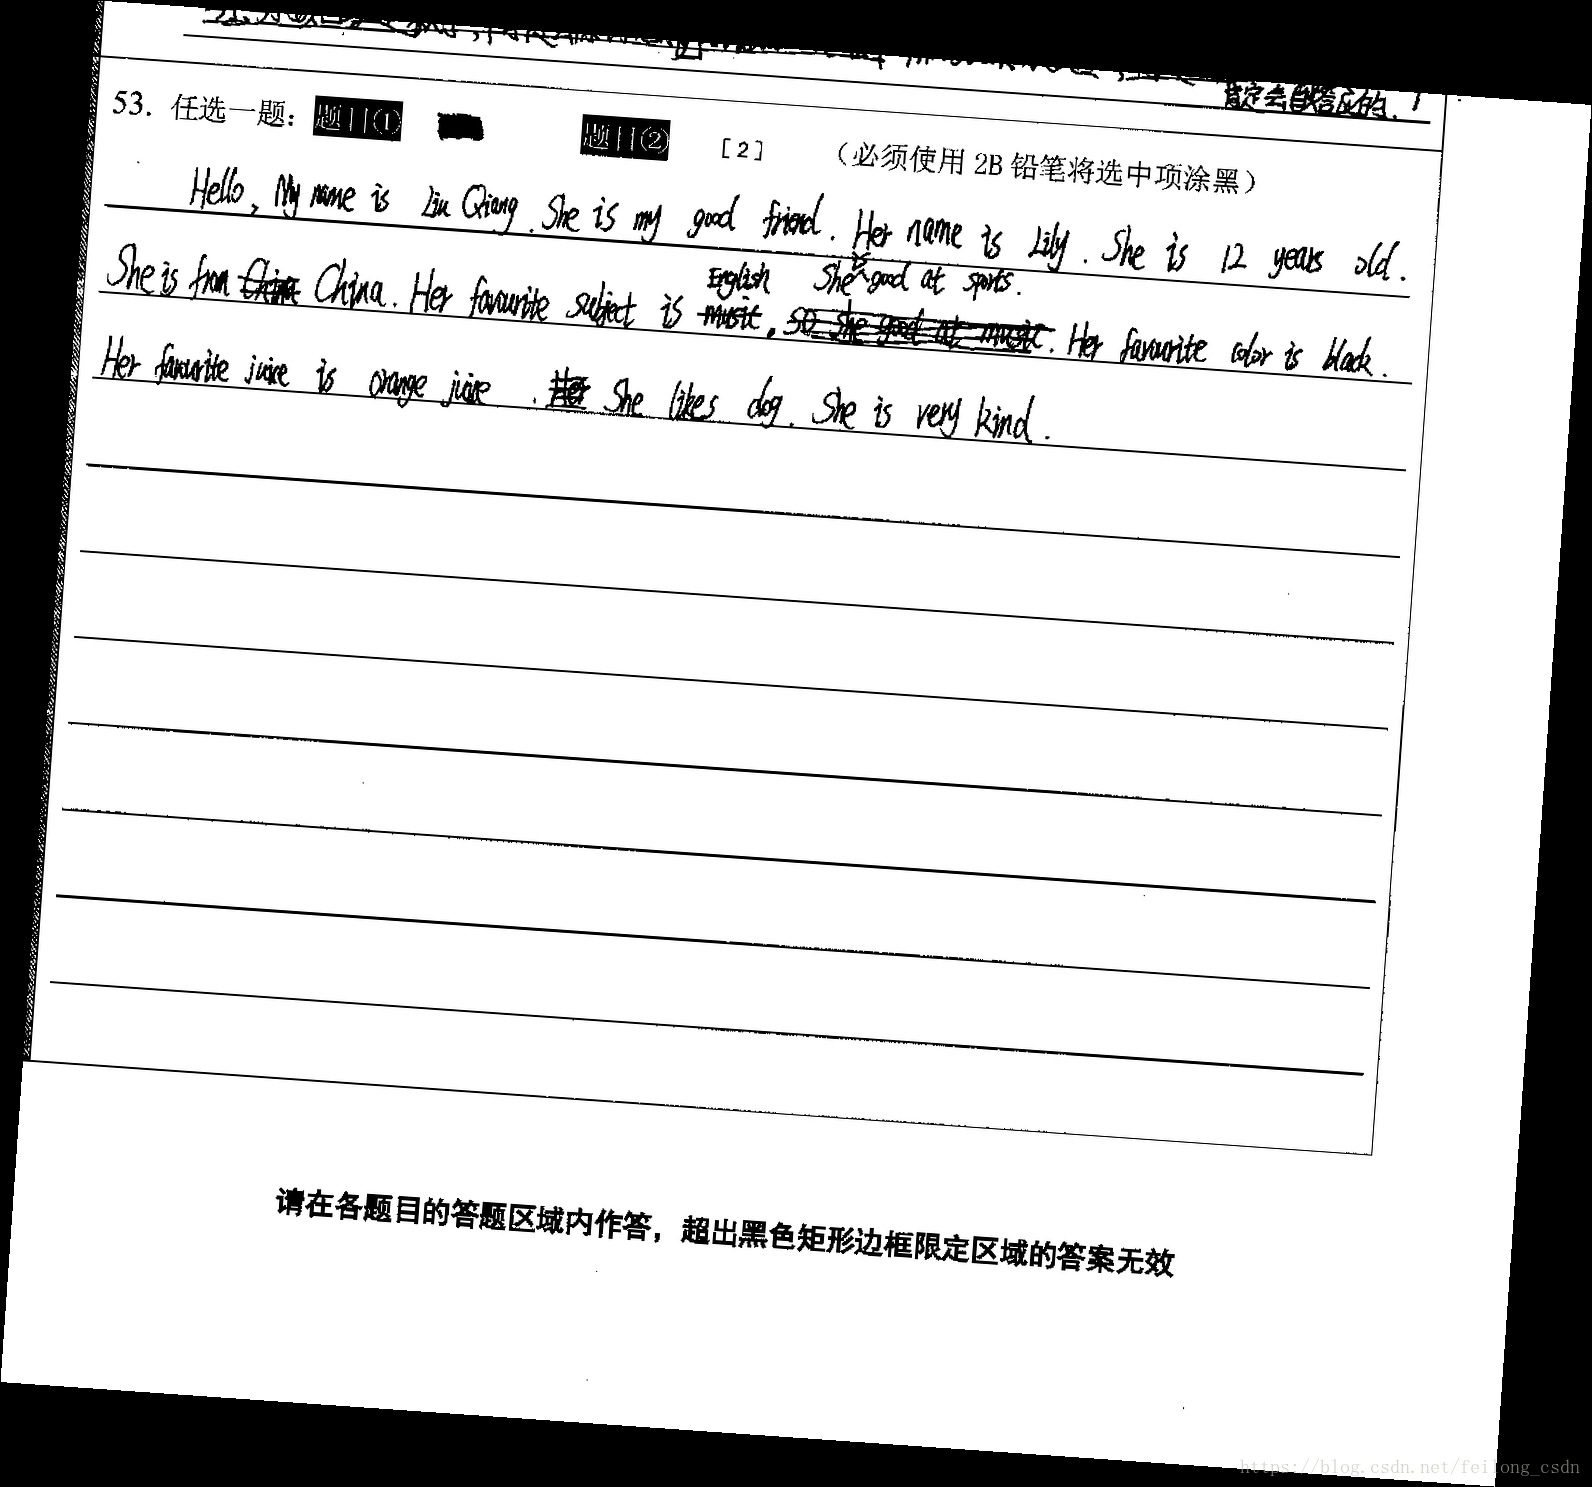 肯定会自答应的.
53. 任选一题: 题目① 题目② [2] (必须使用 2B 铅笔将选中项涂黑)
Hello, My name is Liu Qiang. She is my good friend. Her name is Lily. She is 12 years old.
English She is good at sports.
She is from China China. Her favourite subject is music. so she good at music. Her favourite color is black.
Her favourite juice is orange juice. Her She likes dog. She is very kind.
请在各题目的答题区域内作答，超出黑色矩形边框限定区域的答案无效
https://blog.csdn.net/feilong_csdn